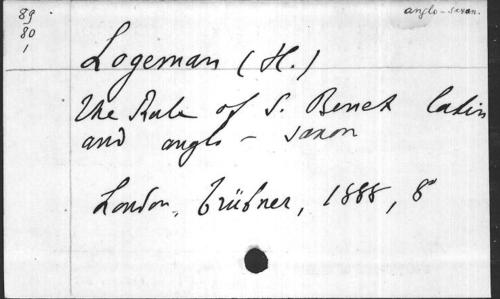 89
80
1
anglo-saxon.
Logeman (H.)
The Rule of S. Benet latin
and anglo-saxon
London, Trübner, 1888, 8°